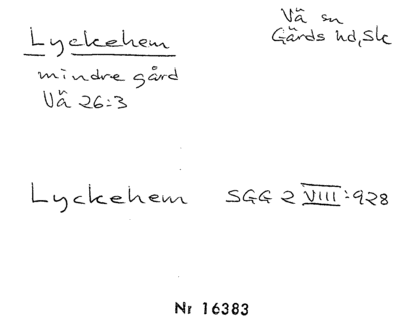 Lyckehem
Vä sn
Gärds hd, Sk
mindre gård
Vä 26:3
Lyckehem SGG 2 VIII:928
Nr 16383